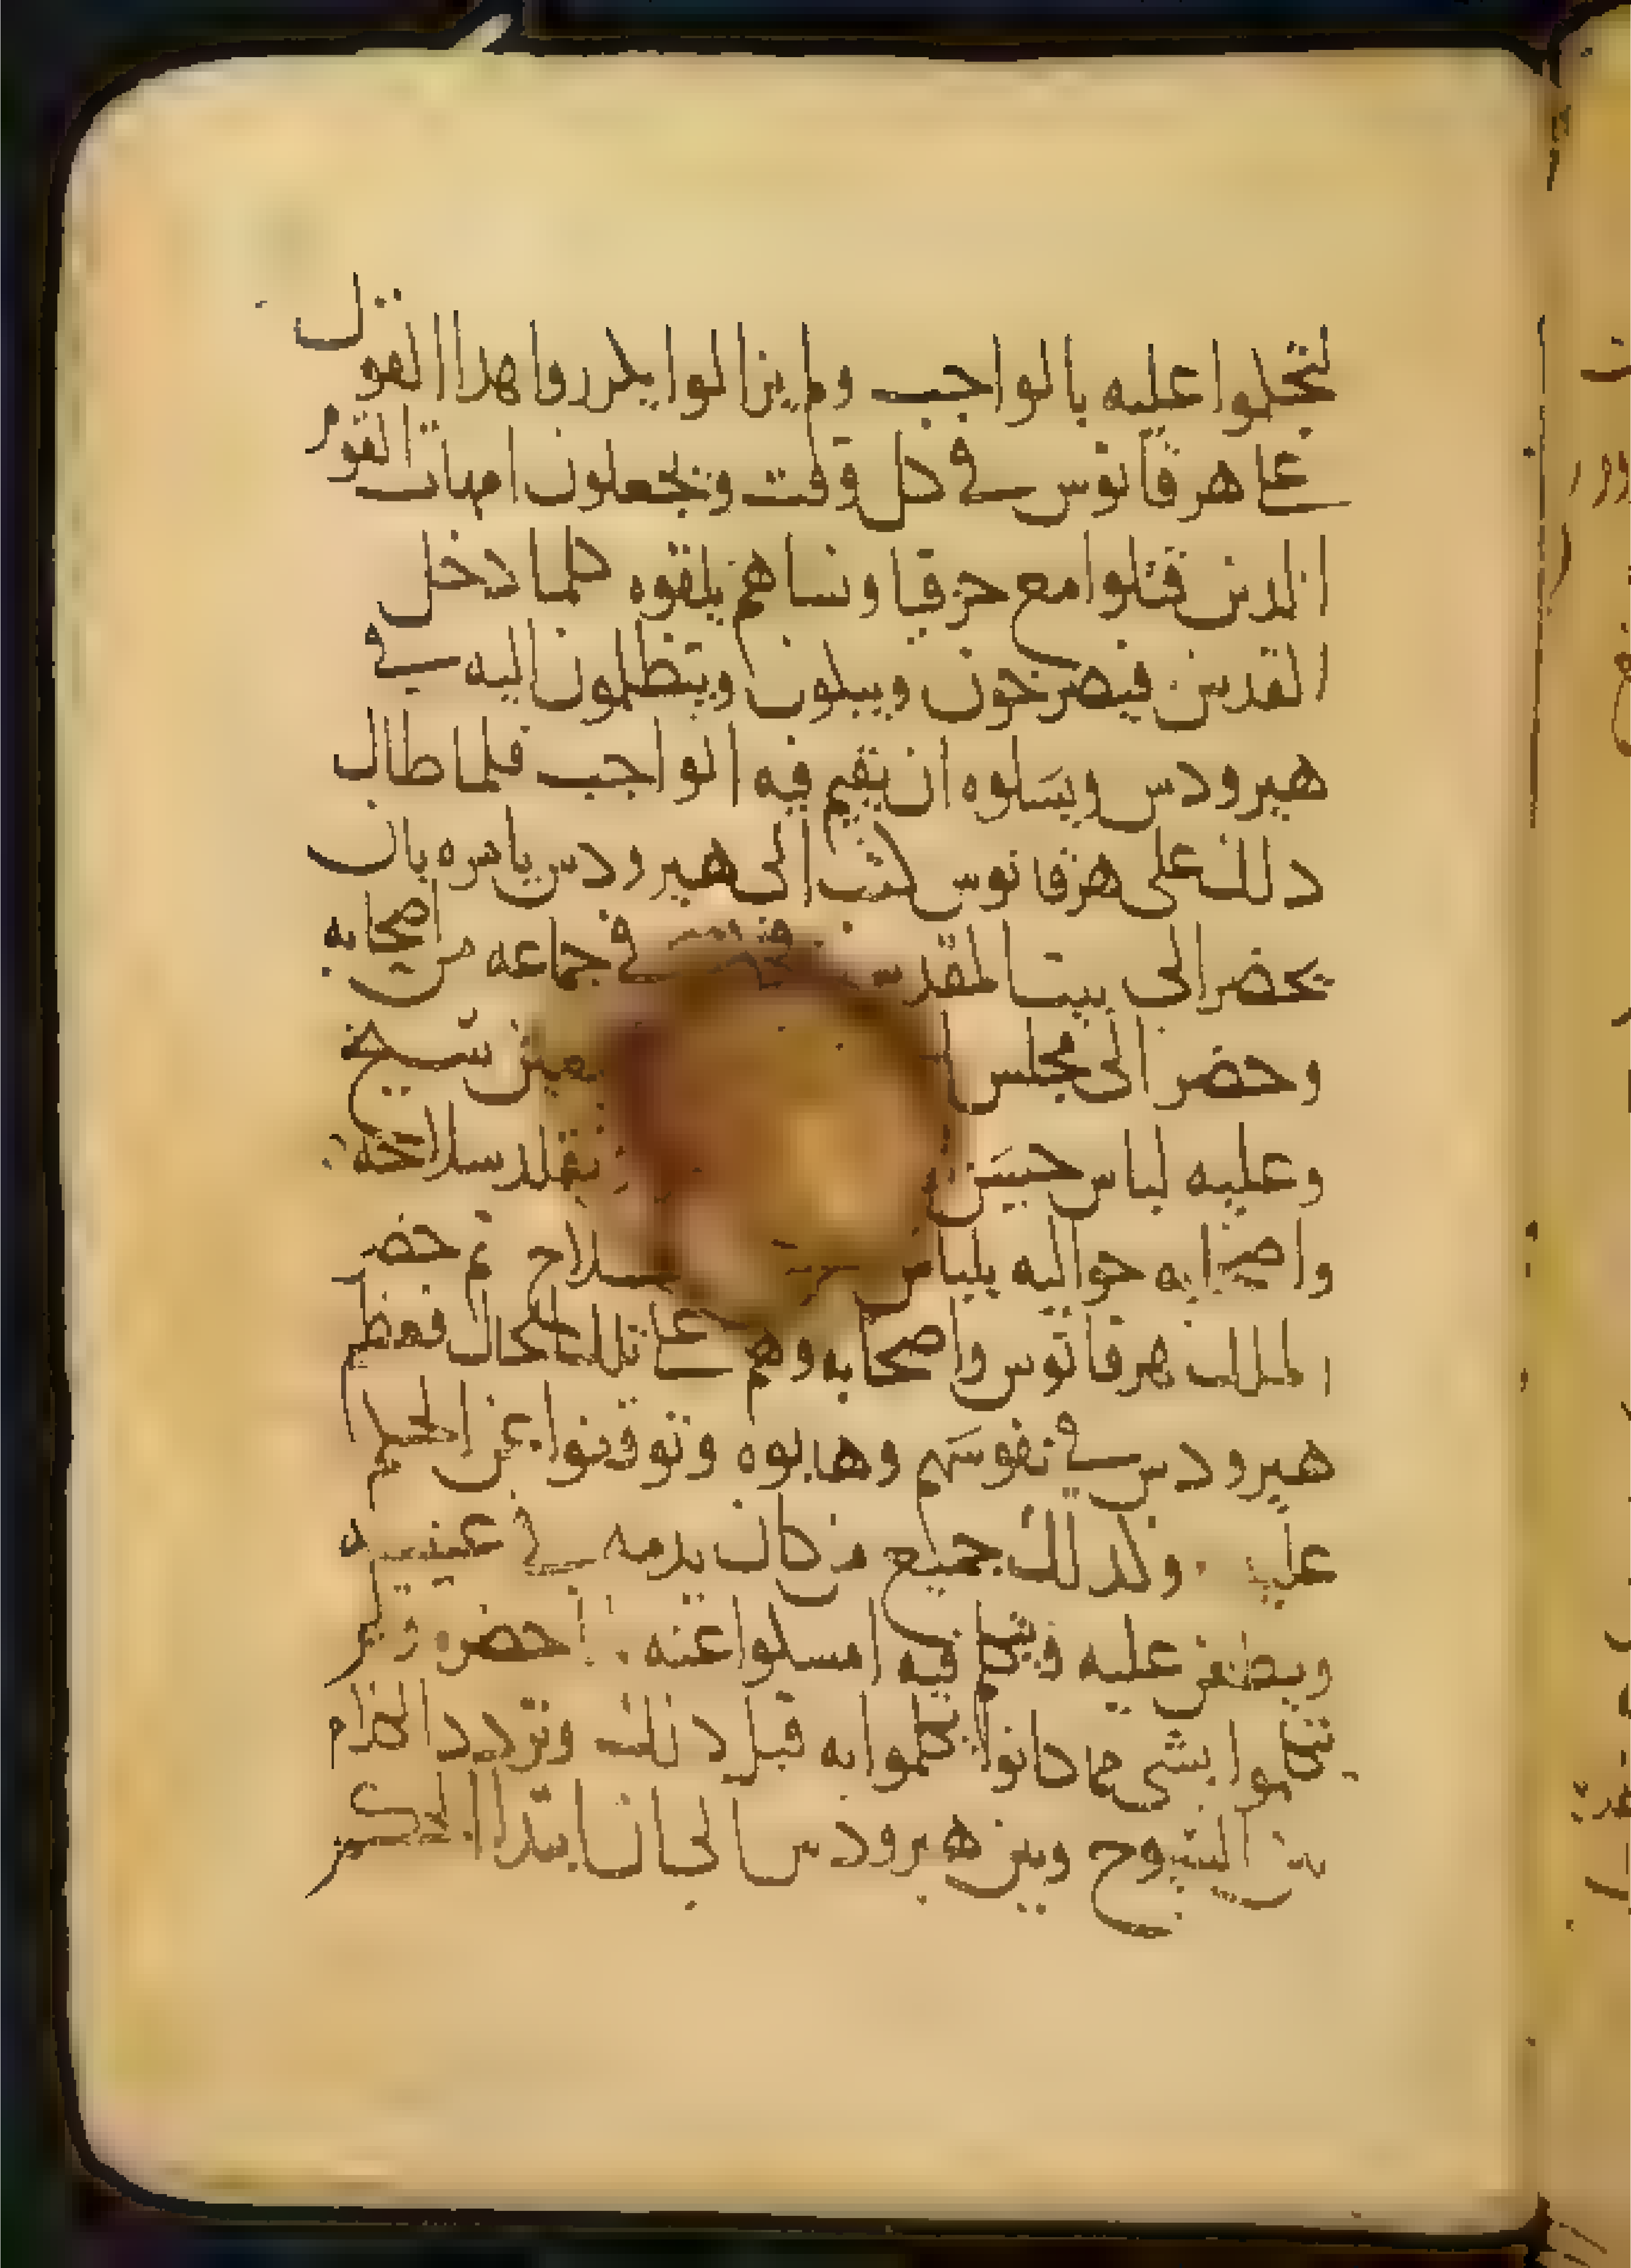 لتحكموا عليه بالواجب ولم يزالوا يكرروا هدا القول
على هرقانوس في كل وقت ويجعلون امهات القوم
الدين قتلوا مع حزقيا ونساهم يلقوه كلما دخل
القدس فيصرخون ويبكون ويتظلمون اليه في
هيرودس ويسلوه ان يقيم فيه الواجب فلما طال
دلك على هرقانوس كتب الى هيرودس يامره بان
يحضر الى بيت المقدس في جماعه من اصحابه
وحضر الى مجلس شيخ
وعليه لباس حسن متقلد سلاحه
واصحابه حواليه بلباس سلاح ثم حضر
الملك هرقانوس واصحابه وهم على تلك الحال فعظم
هيرودس في نفوسهم وهابوه وتوقفوا عن الحكم
عليه وكدلك جميع من كان يدمه في غيبته
ويطعن عليه فيه امسكوا عنه حضره ولم
يتكلموا بشي مما كانوا تكلموا به قبل دلك وتردد الكلام
بين الشيوخ وبين هيرودس الى ان ابتدا الحكم